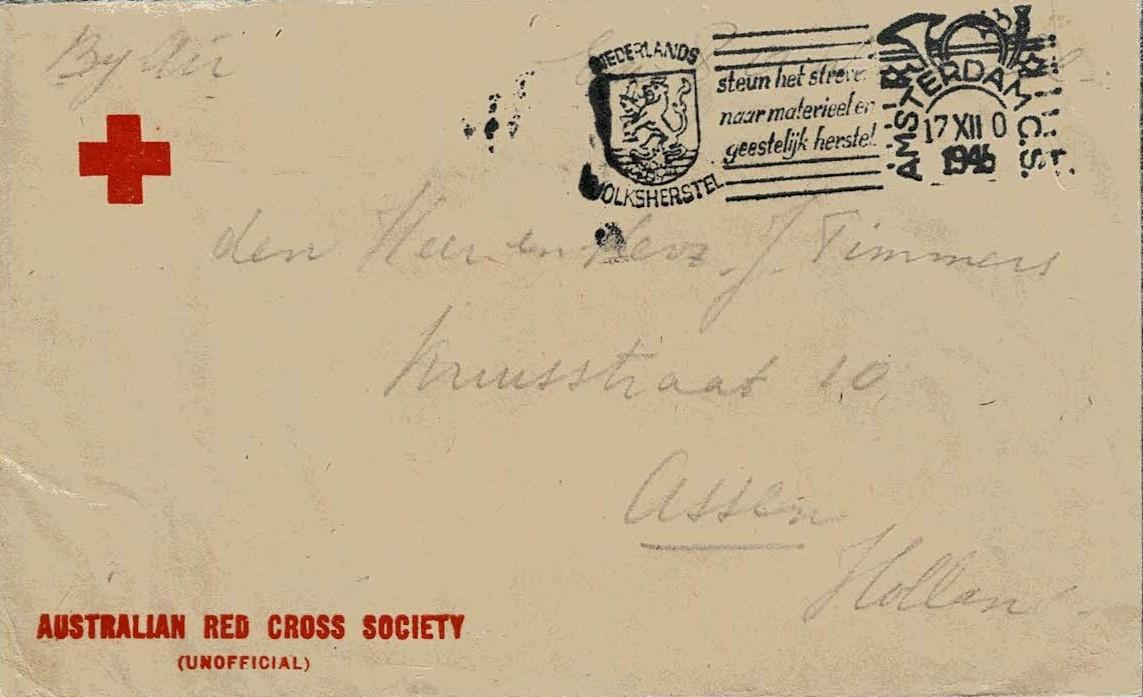 By Air
NEDERLANDS
VOLKSHERSTEL
steun het streven
naar materieel en
geestelijk herstel
AMSTERDAM C.S.
17 XII 0
1945
den Heer en Mevr. J. Timmers
Kruisstraat 10
Assen
Holland
AUSTRALIAN RED CROSS SOCIETY
(UNOFFICIAL)